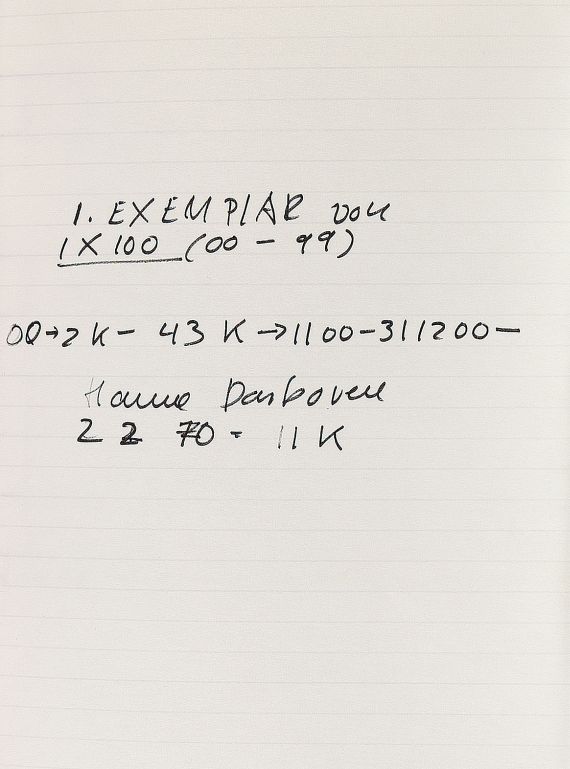 1. EXEMPLAR von
1 X 100 (00 - 99)
00→2 K - 43 K →1100-311200-
Hanne Darboven
2 2 70 = 11 K